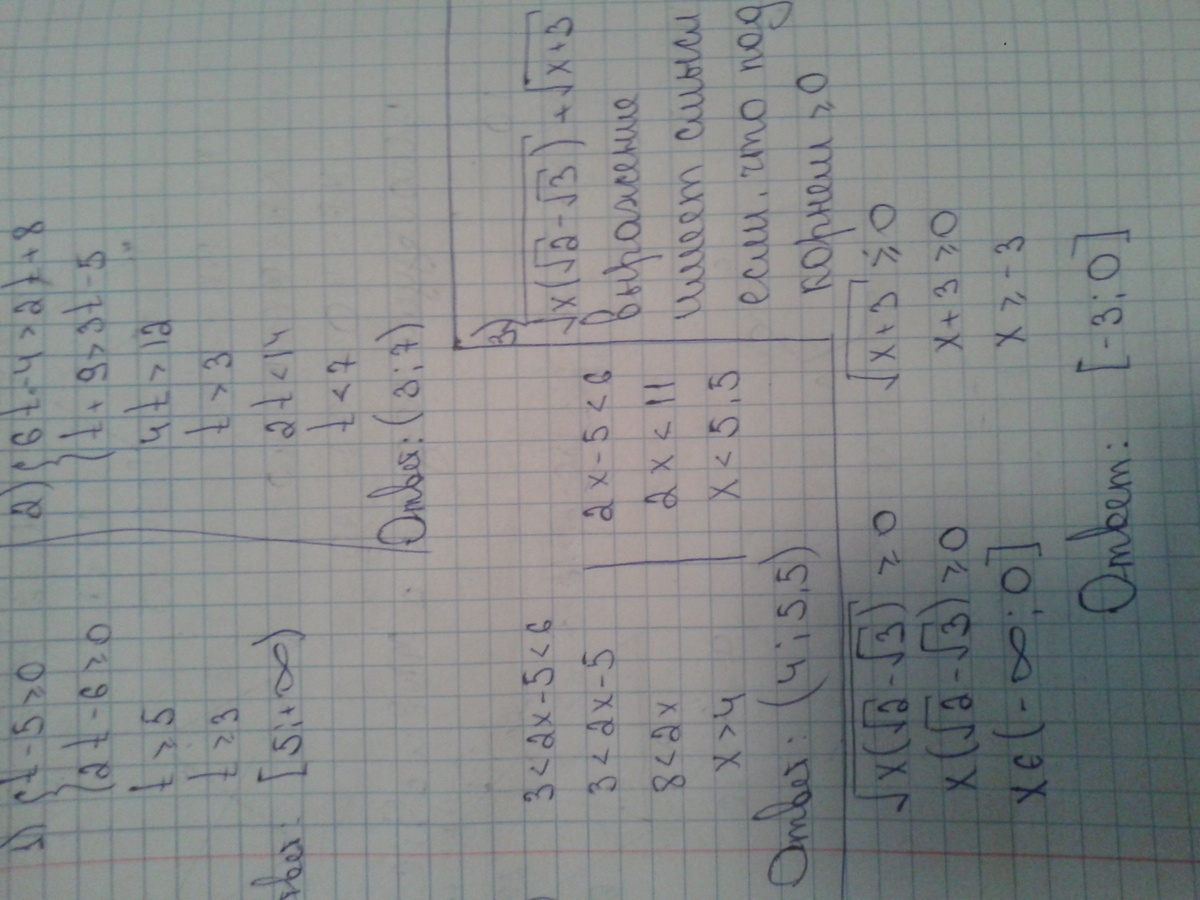 1) { t - 5 ≥ 0
{ 2t - 6 ≥ 0
t ≥ 5
t ≥ 3
твет: [5; +∞)
2) { 6t - 4 > 2t + 8
{ t + 9 > 3t - 5
4t > 12
t > 3
2t < 14
t < 7
Ответ: (3; 7)
3 < 2x - 5 < 6
3 < 2x - 5
8 < 2x
x > 4
2x - 5 < 6
2x < 11
x < 5,5
Ответ: (4; 5,5)
3) √x(√2 - √3) + √x+3
выражение
имеет смысл
если, что под
корнем ≥ 0
√x(√2 - √3) ≥ 0
x(√2 - √3) ≥ 0
x ∈ (-∞; 0]
√x+3 ≥ 0
x + 3 ≥ 0
x ≥ -3
Ответ: [-3; 0]